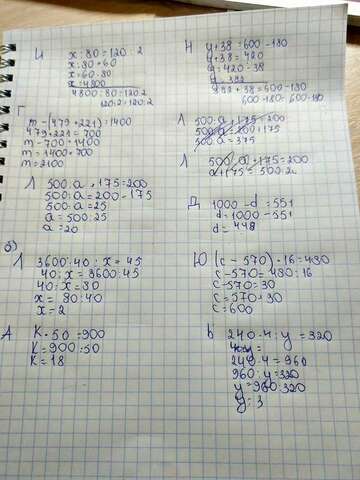 И
x:80=120:2
x:80=60
x=60·80
x=4800
4800:80=120:2
120:2=120:2
Г
m-(479+221)=1400
479+221=700
m-700=1400
m=1400+700
m=2100
Л
500:a+175=200
500:a=200-175
500:a=25
a=500:25
a=20
Н
y+38=600-180
y+38=420
y=420-38
600-180=600-180
Л
500:a+175=200
500:a=200+175
500:a=375
Л
500:a+175=200
Д
1000-d=551
d=1000-551
d=448
б)
Л
3600:40:x=45
40:x=3600:45
40:x=80
x=80:40
x=2
А
K·50=900
K=900:50
K=18
Ю
(c-570)·16=480
c-570=480:16
c-570=30
c=570+30
c=600
Ь
240·4:y=320
240·4=960
960:y=320
y=960:320
y=3